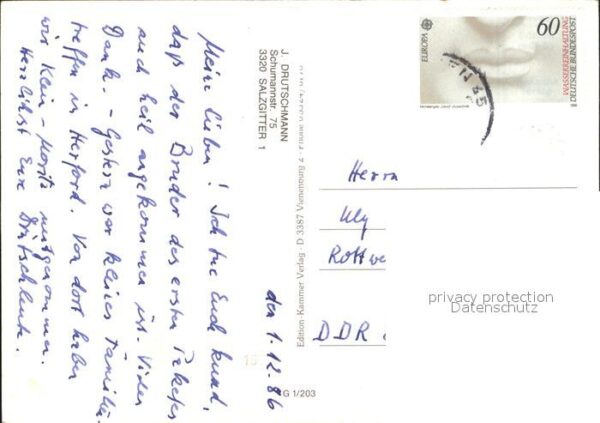 den 1.12.86
Meine Lieben! Ich tue Euch kund,
daß der Bruder des ersten Paketes
auch heil angekommen ist. Vielen
Dank. - Gestern war kleines Familien-
treffen in Herford. Von dort haben
wir Klein-Moritz mitgenommen.
Herzlichst Eure Drutschleute.
J. DRUTSCHMANN
Schumannstr. 75
3320 SALZGITTER 1
Edition Kammer Verlag · D 3387 Vienenburg 4
G 1/203
EUROPA
60
DEUTSCHE BUNDESPOST
WASSERREINHALTUNG
Herrn
Rottwe
DDR
privacy protection
Datenschutz